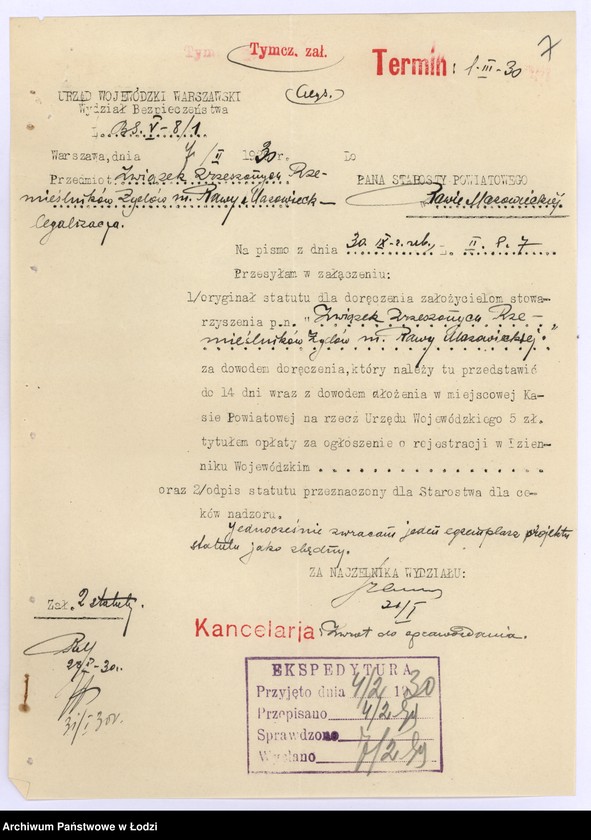 Tymcz. zał.
Termin: 1-III-30
7
URZĄD WOJEWÓDZKI WARSZAWSKI
Wydział Bezpieczeństwa
L. BS. V-8/1
Warszawa, dnia 7/II 1930 r.
Do
Przedmiot: Związek Zrzeszonych Rze-
PANA STAROSTY POWIATOWEGO
mieślników Żydów m. Rawy Mazowieck-
w Rawie Mazowieckiej.
legalizacja.
Na pismo z dnia 30 IX-z.rb. L. II. 8. 7
Przesyłam w załączeniu:
1/oryginał statutu dla doręczenia założycielom stowa-
rzyszenia p.n. "Związek Zrzeszonych Rze-
mieślników Żydów m. Rawy Mazowieckiej."
za dowodem doręczenia, który należy tu przedstawić
do 14 dni wraz z dowodem złożenia w miejscowej Ka-
sie Powiatowej na rzecz Urzędu Wojewódzkiego 5 zł.
tytułem opłaty za ogłoszenie o rejestracji w Dzien-
niku Wojewódzkim
oraz 2/odpis statutu przeznaczony dla Starostwa dla ce-
ków nadzoru.
Jednocześnie zwracam jeden egzemplarz projektu
statutu jako zbędny.
ZA NACZELNIKA WYDZIAŁU:
21/I
Zał. 2 statuty.
Kancelarja: Zwrot do sprawdzania.
29/I-30r.
31/I 30r.
EKSPEDYTURA
Przyjęto dnia 4/2 1930
Przepisano 4/2
Sprawdzono
Wysłano 7/2
Archiwum Państwowe w Łodzi